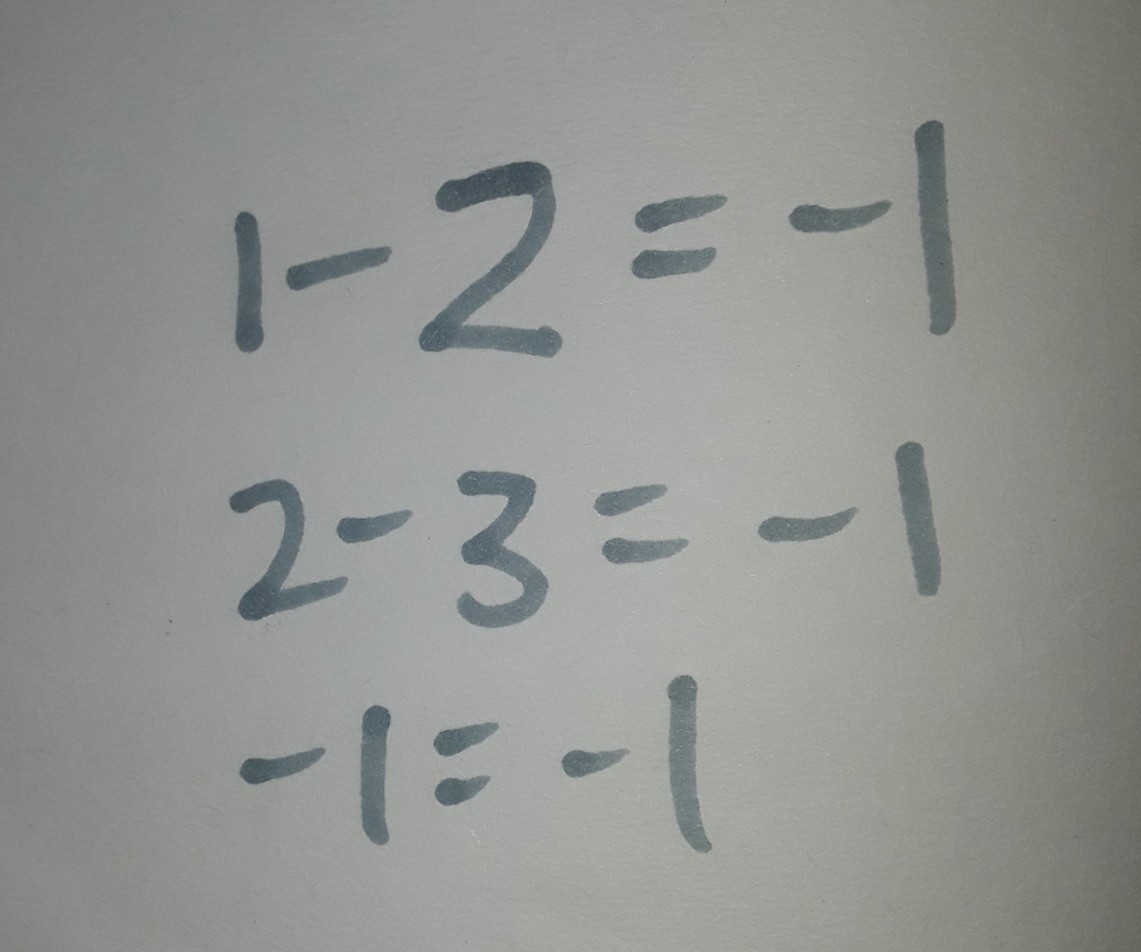 1-2=-1
2-3=-1
-1=-1